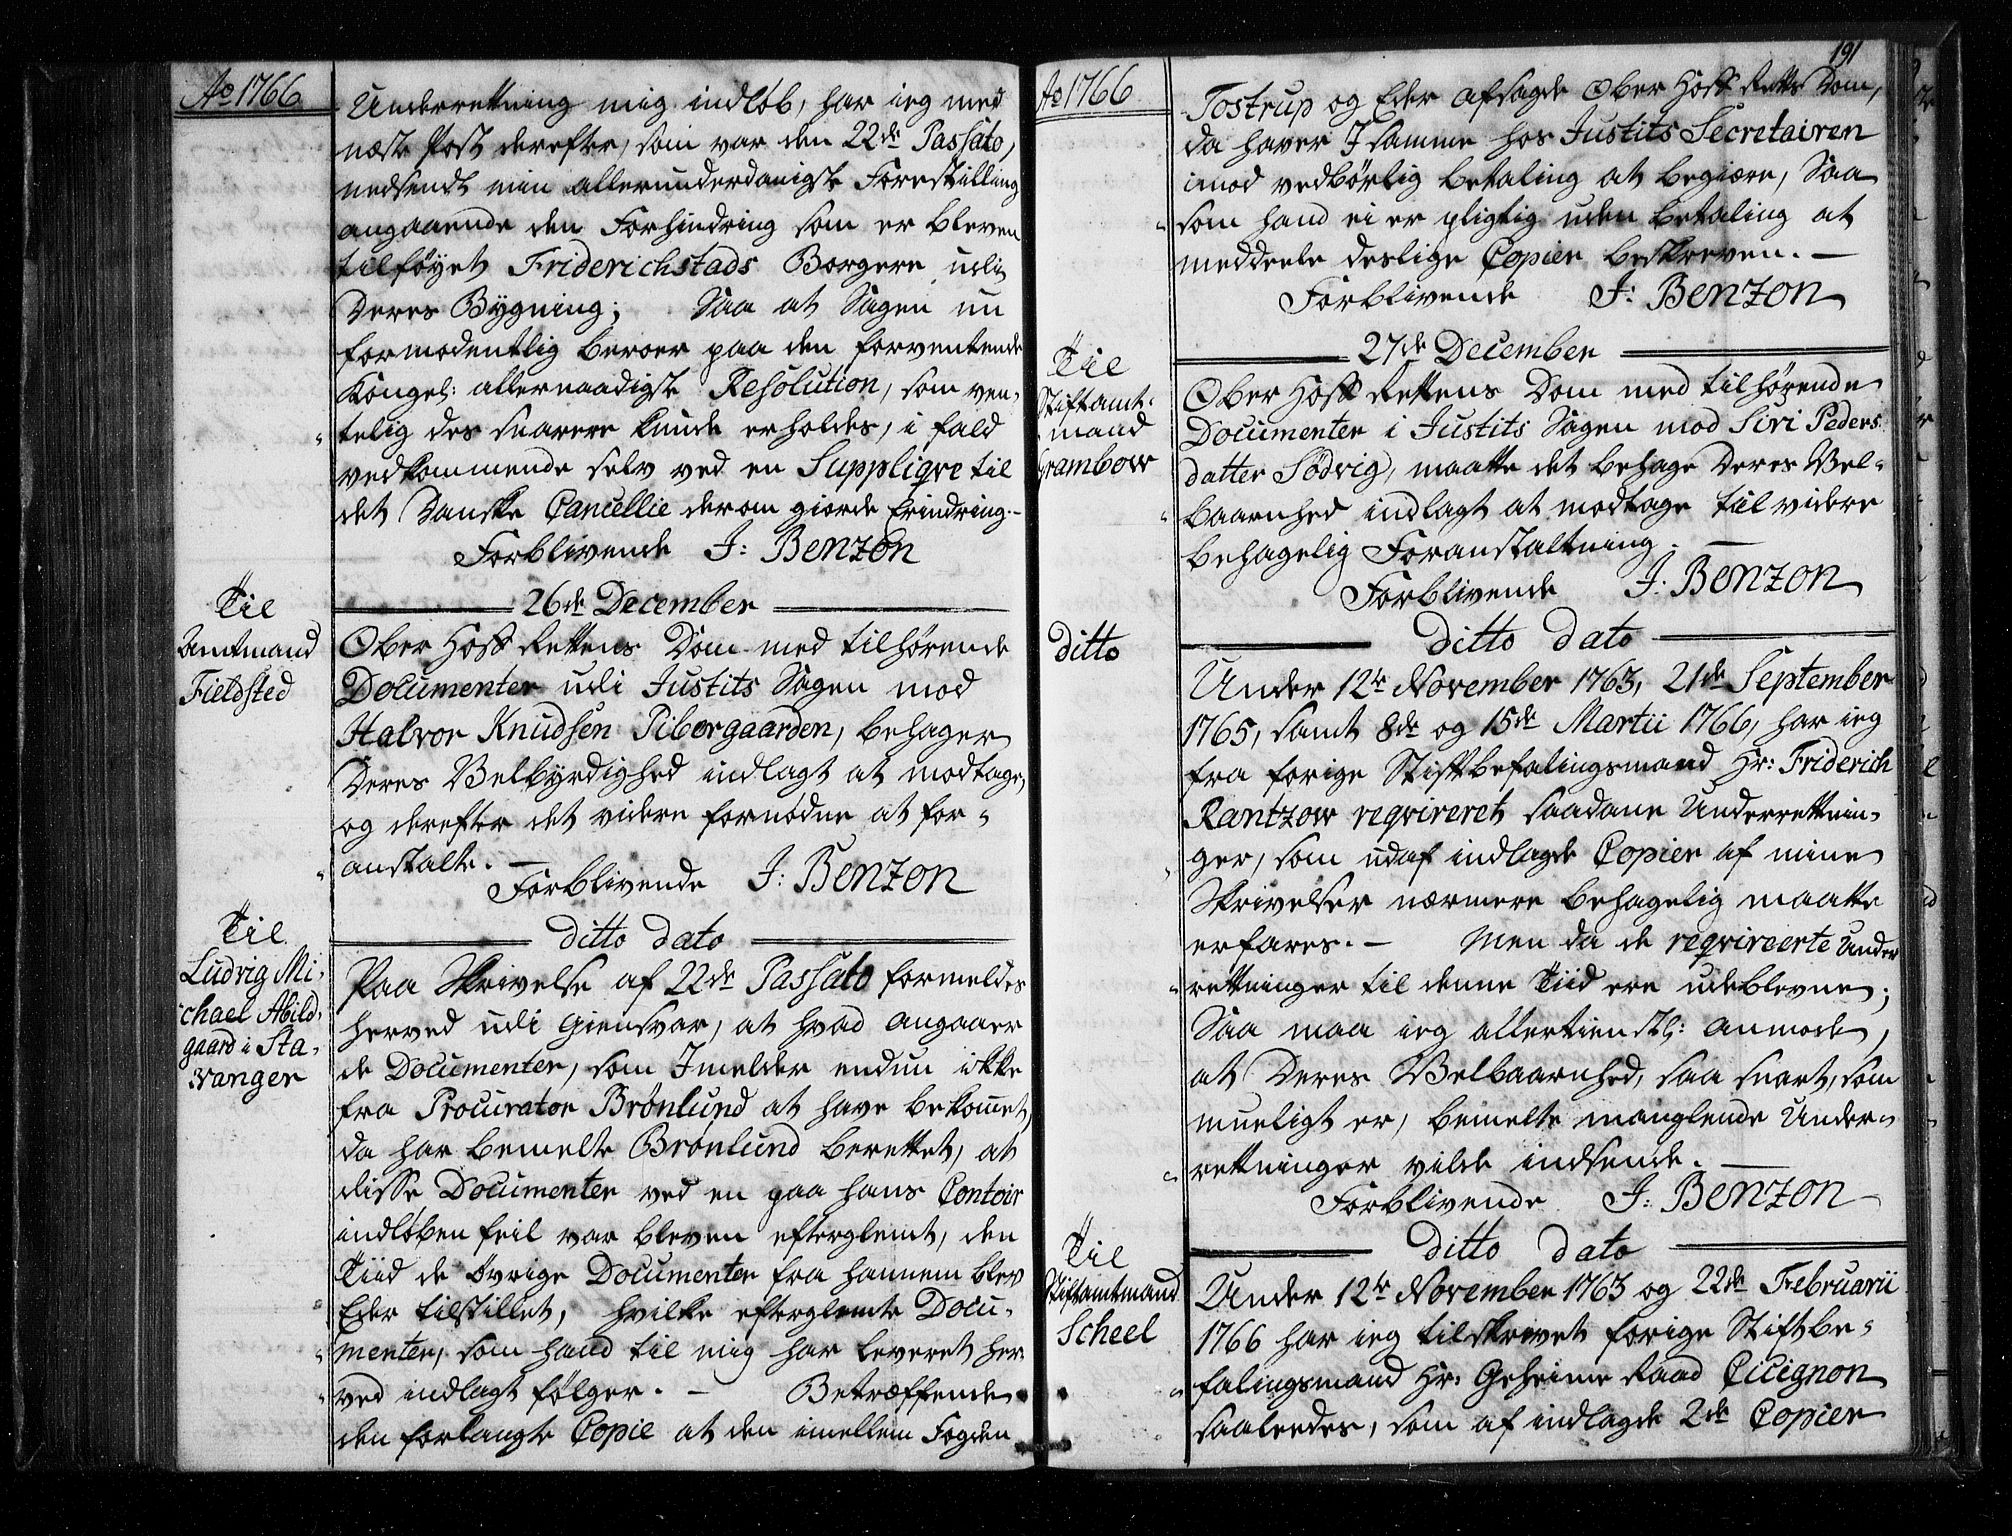 Ao 1766
Underrettning mig indløb, har ieg med
næste Post derefter, som var den 22de Passato,
nedsendt min allerunderdanigste Forestilling
angaaende den Forhindring som er bleven
tilføyet Friderichstads Borgere udi
Deres Bygning; Saa at Sagen nu
formodentlig beroer paa den forventende
Kongel: allernaadigste Resolution, som ven-
telig des snarere kunde erholdes, i fald
vedkommende selv ved en Suppliqve til
det Danske Cancellie derom giorde Erindring.-
Forblivende J: Benzon
26de December
Til
Amtmand
Fieldsted
Ober Hoff Rettens Dom med tilhørende
Documenter udi Justits Sagen mod
Halvor Knudsen Piborgaarden, behager
Deres Velbyrdighed indlagt at modtage,
og derefter det videre fornødne at for-
anstalte. -
Forblivende J: Benzon
ditto dato
Til
Ludvig Mi-
chael Abild-
gaard i Sta-
vanger
Paa Skrivelse af 22de Passato formeldes
herved udi Giensvar, at hvad angaaer
de Documenter, som I melder endnu ikke
fra Procurator Brønlund at have bekomet,
da har bemelte Brønlund berettet, at
disse Documenter ved en paa hans Contoir
indløben feil var bleven efterglemt, den
Tiid de øvrige Documenter fra hannem blev
Eder tilstillet, hvilke efterglemte Docu-
menter, som hand til mig har leveret her
ved indlagt følger. - Betræffende
den forlangte Copie at den imellem Fogden
191
Ao 1766
Tostrup og Eder afsagde Ober Hoff Retts Dom,
da haver I samme hos Justits Secretairen
imod vedbørlig betaling at begiære, Saa
som hand ei er pligtig uden betaling at
meddeele deslige Copier beskreven. -
Forblivende J: Benzon
27de December
Til
Stiftamt-
mand
Grambow
Ober Hoff Rettens Dom med tilhørende
Documenter i Justits Sagen mod Siri Peders
datter Sødvig, maatte det behage Deres Vel-
baarnhed indlagt at modtage til videre
behagelig Foranstaltning. -
Forblivende J: Benzon
ditto dato
ditto
Under 12te November 1763, 21de September
1765, samt 8de og 15de Martii 1766, har ieg
fra forige Stiftbefalingsmand Hr: Friderich
Rantzow reqvireret saadane Underrettnin-
ger, som udaf indlagde Copier af mine
Skrivelser nærmere behagelig maatte
erfares. - Men da de reqvireerte Under
rettninger til denne Tiid ere udeblevne;
Saa maa ieg allertienstl: anmode,
at Deres Velbaarnhed, saa snart, som
mueligt er, bemelte manglende Under-
rettninger vilde indsende. -
Forblivende J: Benzon
ditto dato
Til
Stiftamtmand
Scheel
Under 12te November 1763 og 22de Februarii
1766 har ieg tilskrivet forige Stiftbe-
falingsmand Hr: Geheime Raad Cicignon
saaleedes, som af indlagde 2de Copier